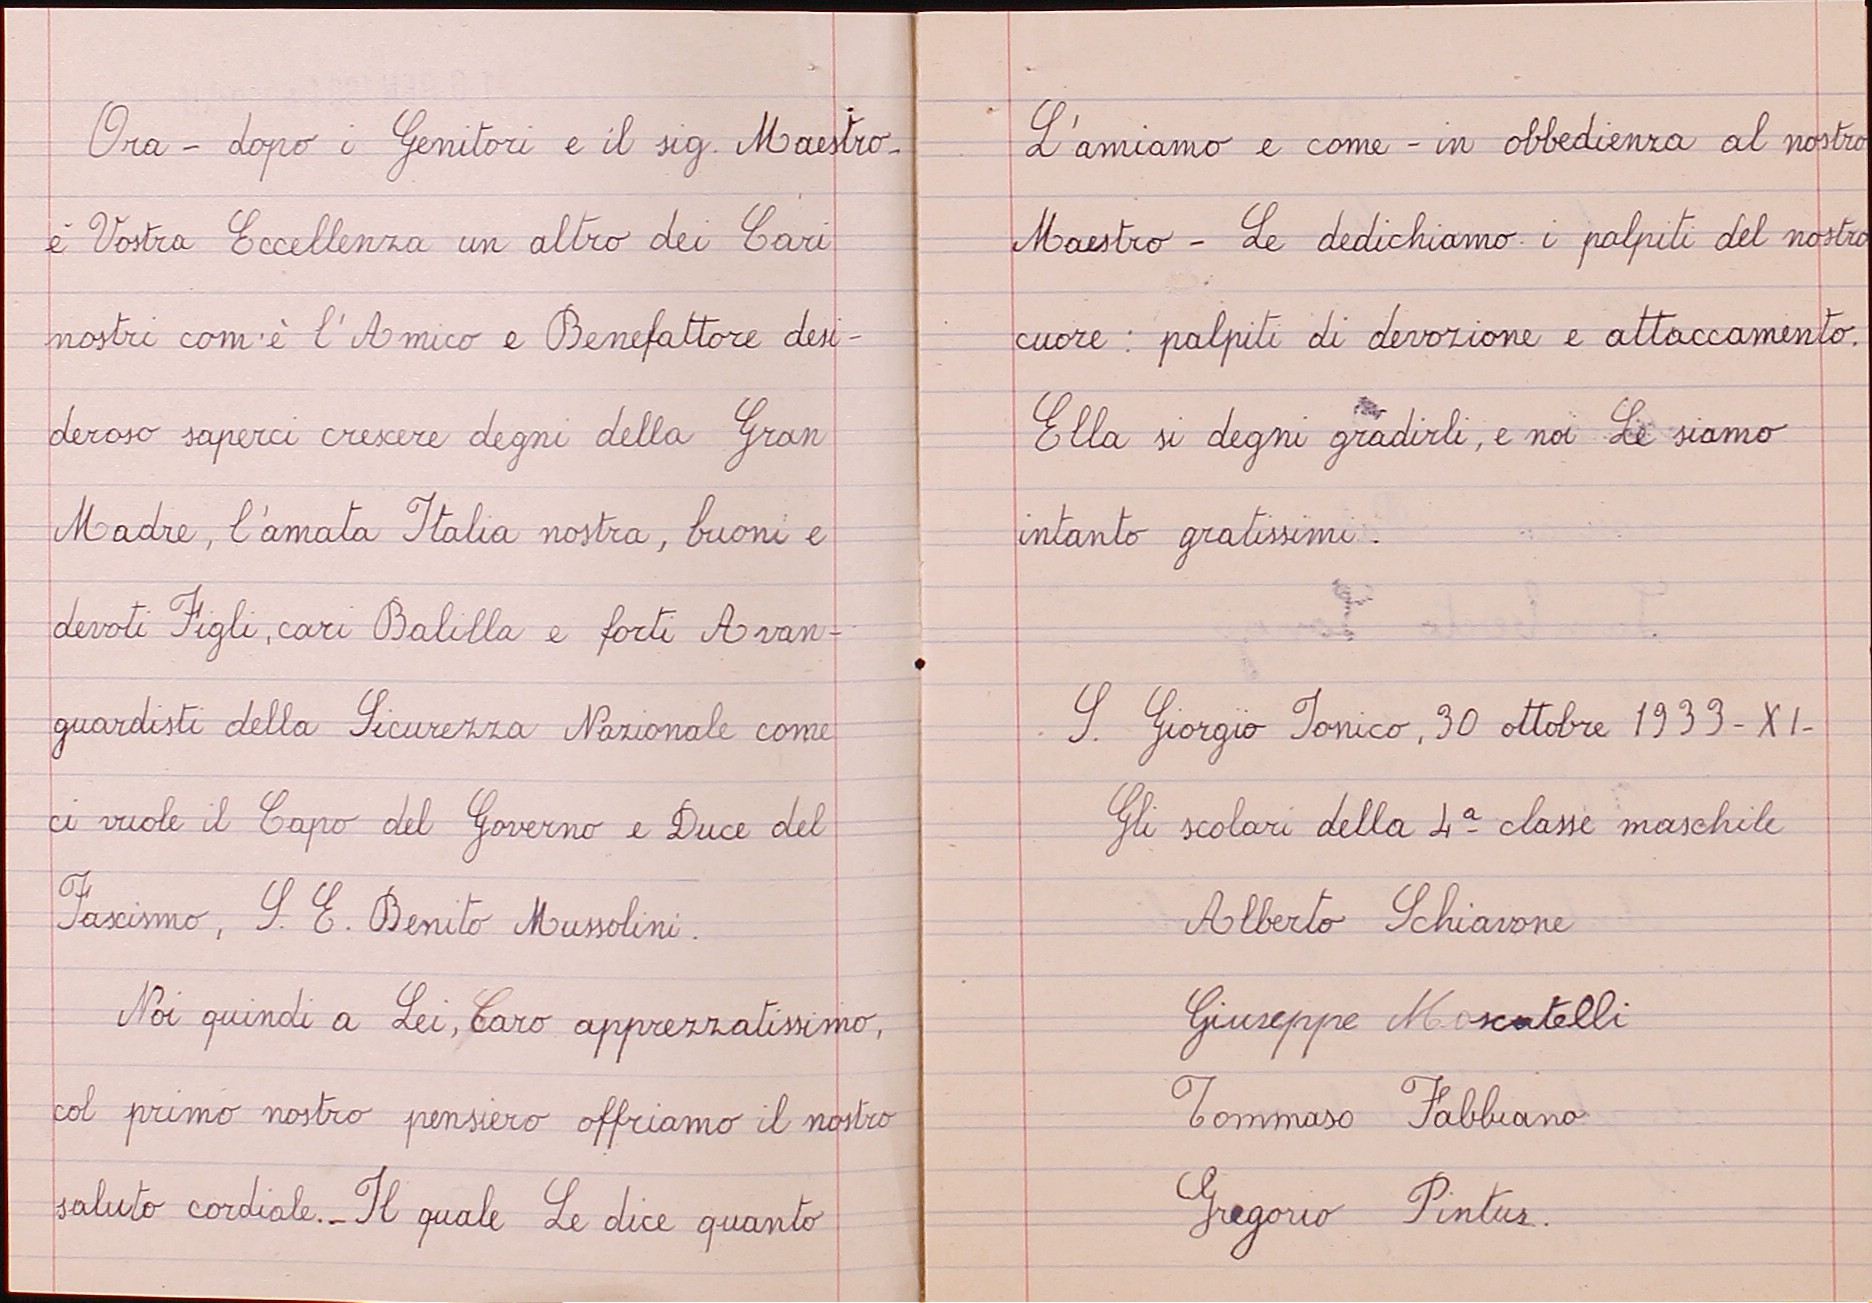 Ora - dopo i Genitori e il sig. Maestro -
è Vostra Eccellenza un altro dei Cari
nostri com'è l'Amico e Benefattore desi-
deroso saperci crescere degni della Gran
Madre, l'amata Italia nostra, buoni e
devoti Figli, cari Balilla e forti Avan-
guardisti della Sicurezza Nazionale come
ci vuole il Capo del Governo e Duce del
Fascismo, S. E. Benito Mussolini.
Noi quindi a Lei, Caro apprezzatissimo,
col primo nostro pensiero offriamo il nostro
saluto cordiale. - Il quale Le dice quanto
L'amiamo e come - in obbedienza al nostro
Maestro - Le dedichiamo i palpiti del nostro
cuore: palpiti di devozione e attaccamento.
Ella si degni gradirli, e noi Le siamo
intanto gratissimi.
S. Giorgio Jonico, 30 ottobre 1933 - XI -
Gli scolari della 4ª classe maschile
Alberto Schiavone
Giuseppe Moscatelli
Tommaso Fabbiano
Gregorio Pintus.